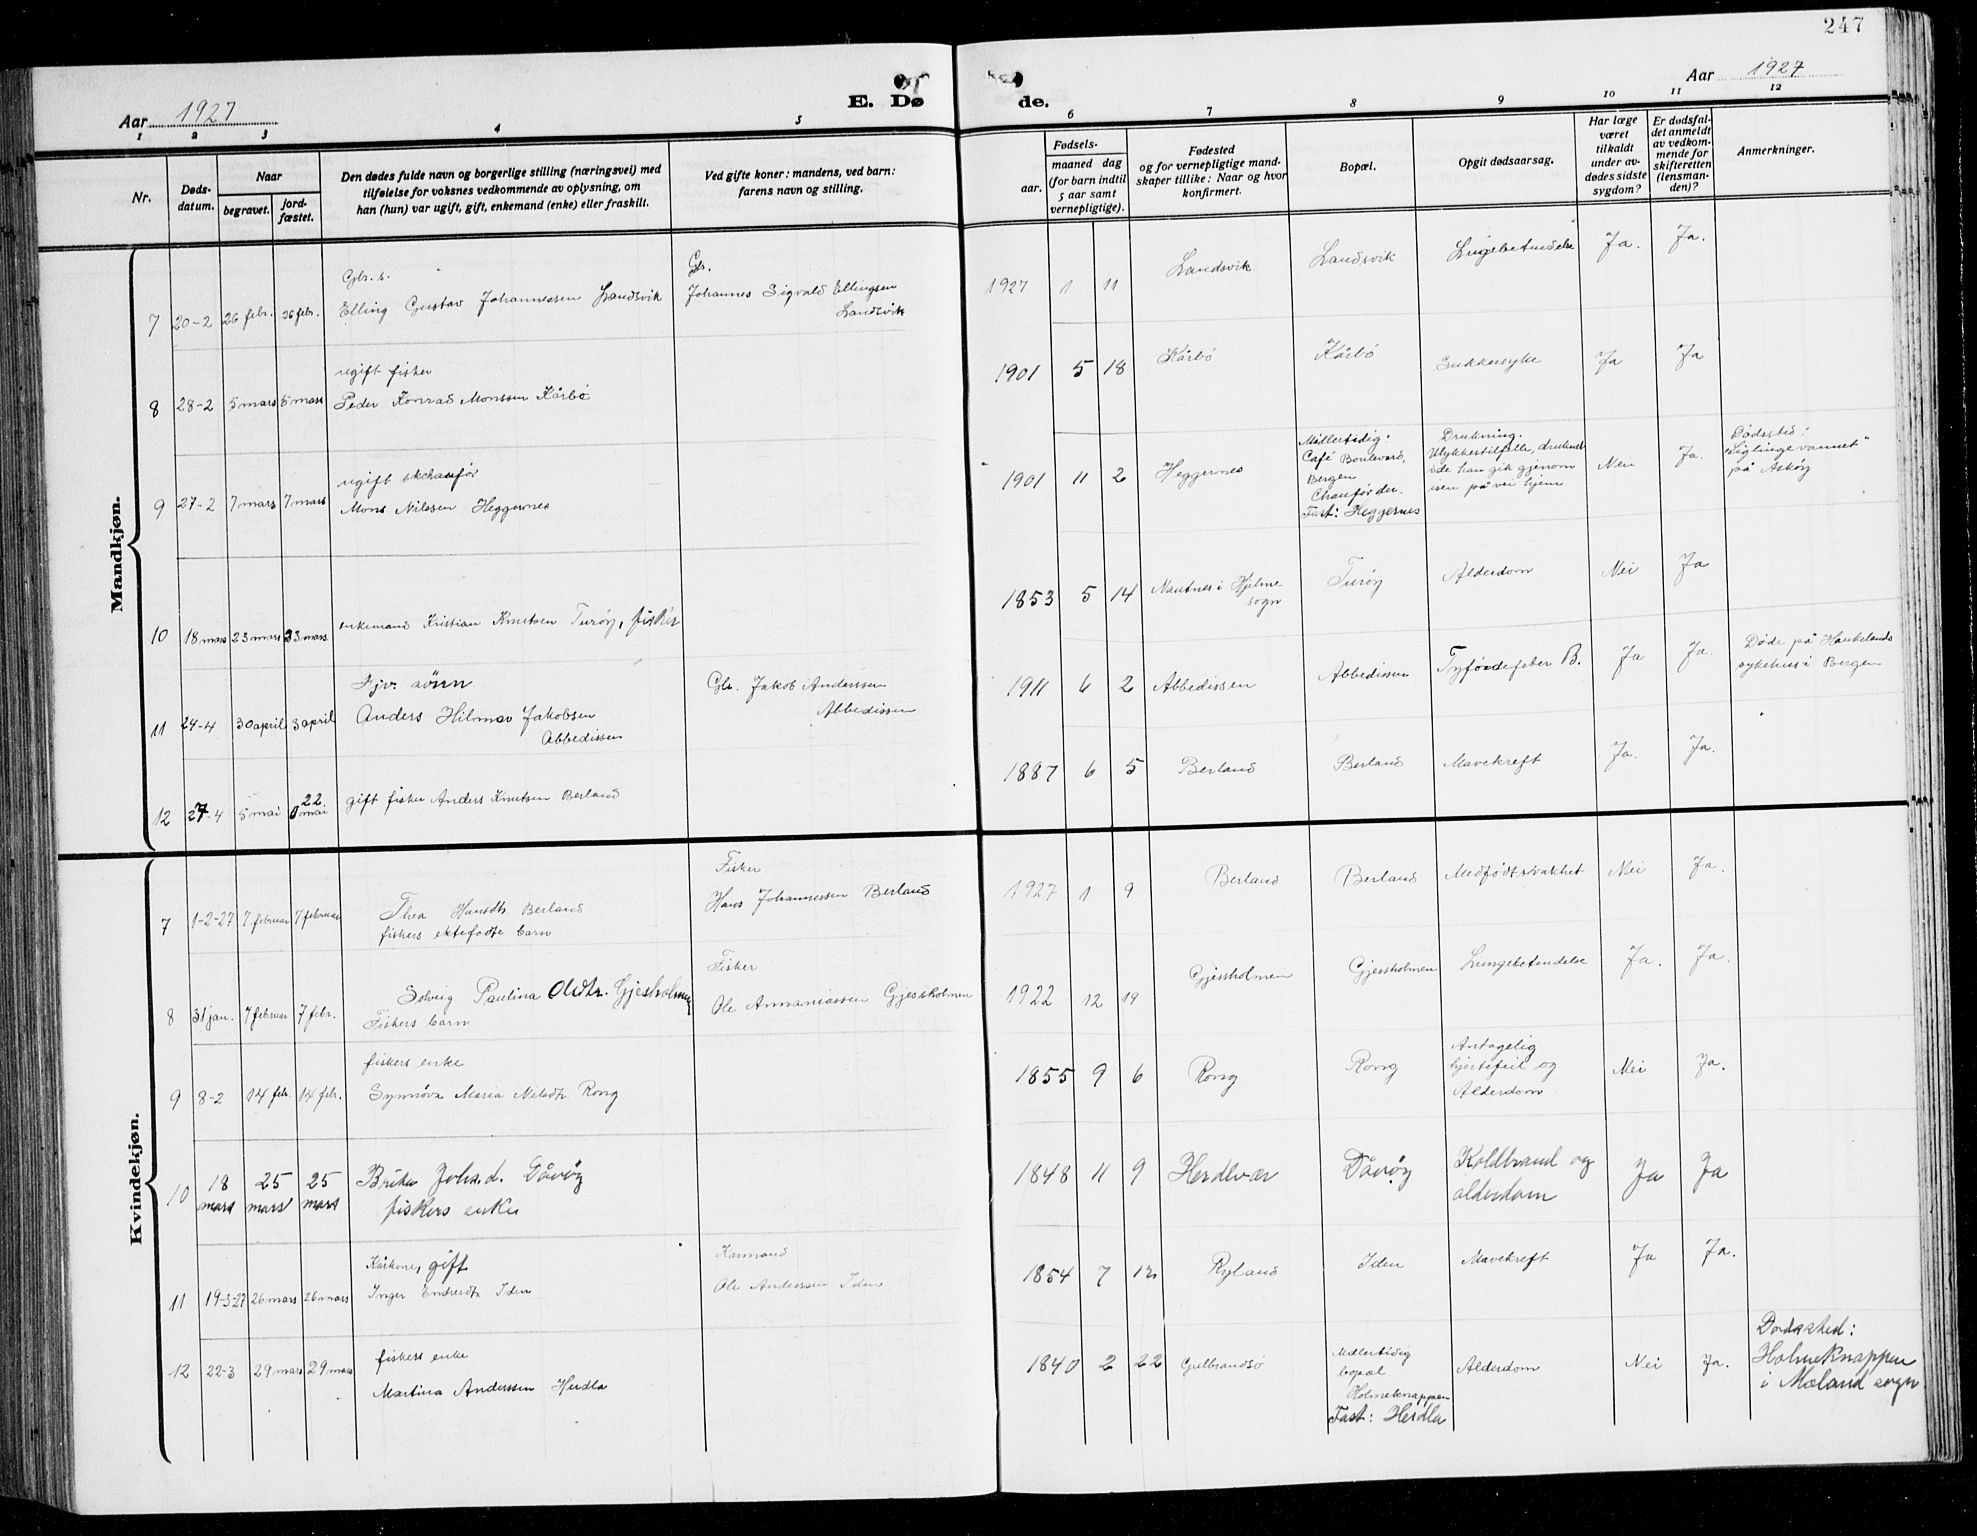 247
Aar 1927
E. Døde.
Aar 1927
1 2 3 4 5 6 7 8 9 10 11 12
Nr.
Døds-
datum.
Naar
begravet.
jord-
fæstet.
Den dødes fulde navn og borgerlige stilling (næringsvei) med
tilføielse for voksnes vedkommende av oplysning, om
han (hun) var ugift, gift, enkemand (enke) eller fraskilt.
Ved gifte koner: mandens, ved barn:
farens navn og stilling.
Fødsels-
aar.
maaned dag
(for barn indtil
5 aar samt
vernepligtige).
Fødested
og for vernepligtige mand-
skaper tillike: Naar og hvor
konfirmert.
Bopæl.
Opgit dødsaarsag.
Har læge
været
tilkaldt
under av-
dødes sidste
sygdom?
Er dødsfal-
det anmeldt
av vedkom-
mende for
skifteretten
(lensman-
den)?
Anmerkninger.
Mandkjøn.
7 20-2 26 febr. 26 febr.
Gbr. s.
Elling Gustav Johannessen Landsvik
Gbr.
Johannes Sigvald Ellingsen
Landsvik
1927 1 11 Landsvik Landsvik Lungebetendelse Ja. Ja.
8 28-2 5 mars 5 mars
ugift fisker
Peder Konrad Monssen Kårbø
1901 5 18 Kårbø Kårbø Sukkersyke Ja Ja
9 27-2 7 mars 7 mars
ugift
Mons Nilssen Heggernes
1901 11 2 Heggernes
Midlertidig:
Café Boulevard,
Bergen
Chaufør der.
Fast: Heggernes
Drukning.
Ulykkestilfelle, druknet
ide han gik gjenom
isen på vei hjem
Nei Ja.
Dødssted:
på Askøy
10 18 mars 23 mars 23 mars
enkemand Kristian Knutsen Turøy, fisker
1853 5 14
Nautnes i Hjelme
sogn
Turøy Alderdom Nei Ja
11 24-4 30 april 3 april
Gjv. sønn
Anders Hilmar Jakobsen
Abbedissen
Gbr. Jakob Anderssen
Abbedissen
1911 6 2 Abbedissen Abbedissen Tyføidefeber B. Ja Ja.
Døde på Haukelands
sykehus i Bergen
12 27-4 5 mai 22. mai
gift fisker Anders Knutsen Berland
1887 6 5 Berland Berland Mavekreft Ja. Ja.
Kvindekjøn.
7 1-2-27 7 februar 7 februar
Thea Hansdtr Berland
fiskers ektefødte barn
Fisker
Hans Johannessen Berland
1927 1 9 Berland Berland Medfødt svakhet Nei Ja.
8 31 jan. 7 februar 7 febr.
Solveig Paulina Oldtr. Gjesholmen
Fiskers barn
Fisker
Ole Annaniassen Gjessholmen
1922 12 19 Gjessholmen Gjessholmen Lungebetendelse Ja. Ja.
9 8-2 14 febr. 14 febr.
fiskers enke
Synnøva Maria Nilsdtr. Rong
1855 9 6 Rong Rong
Antagelig
hjertefeil og
Alderdom
Nei Ja.
10 18 mars 25 mars 25 mars
Brita Johs.d. Dåvøy
fiskers enke
1848 11 9 Herdlevær Dåvøy
Koldbrand og
alderdom
Ja Ja
11 19-3-27 26 mars 26 mars
Kårkone, gift
Inger Endresdtr Iden
Karmand
Ole Anderssen Iden
1854 7 12 Ryland Iden Mavekreft Ja Ja.
12 22-3 29 mars 29 mars
fiskers enke
Martina Anderssen Herdla
1840 2 22 Gulbrandsø
Midlertidig
bopæl
Holmeknappen
Fast: Herdla
Alderdom Nei Ja.
Dødssted:
Holmeknappen
i Mæland sogn